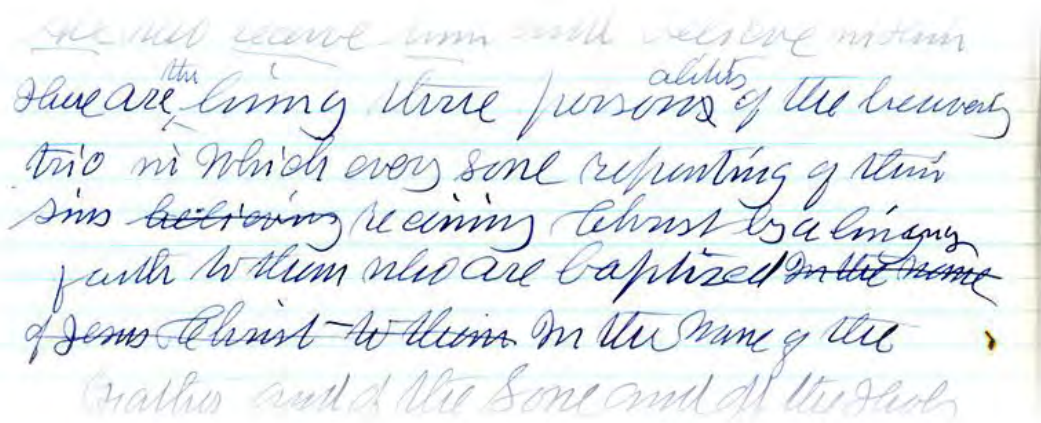 who receive him and believe in him
here are the living three persons alities of the heavenly
trio in which every soul repenting of their
sins believing receiving Christ by a living
faith to them who are baptized in the name
of Jesus Christ to them In the name of the
Father and of the Sone and of the Holy